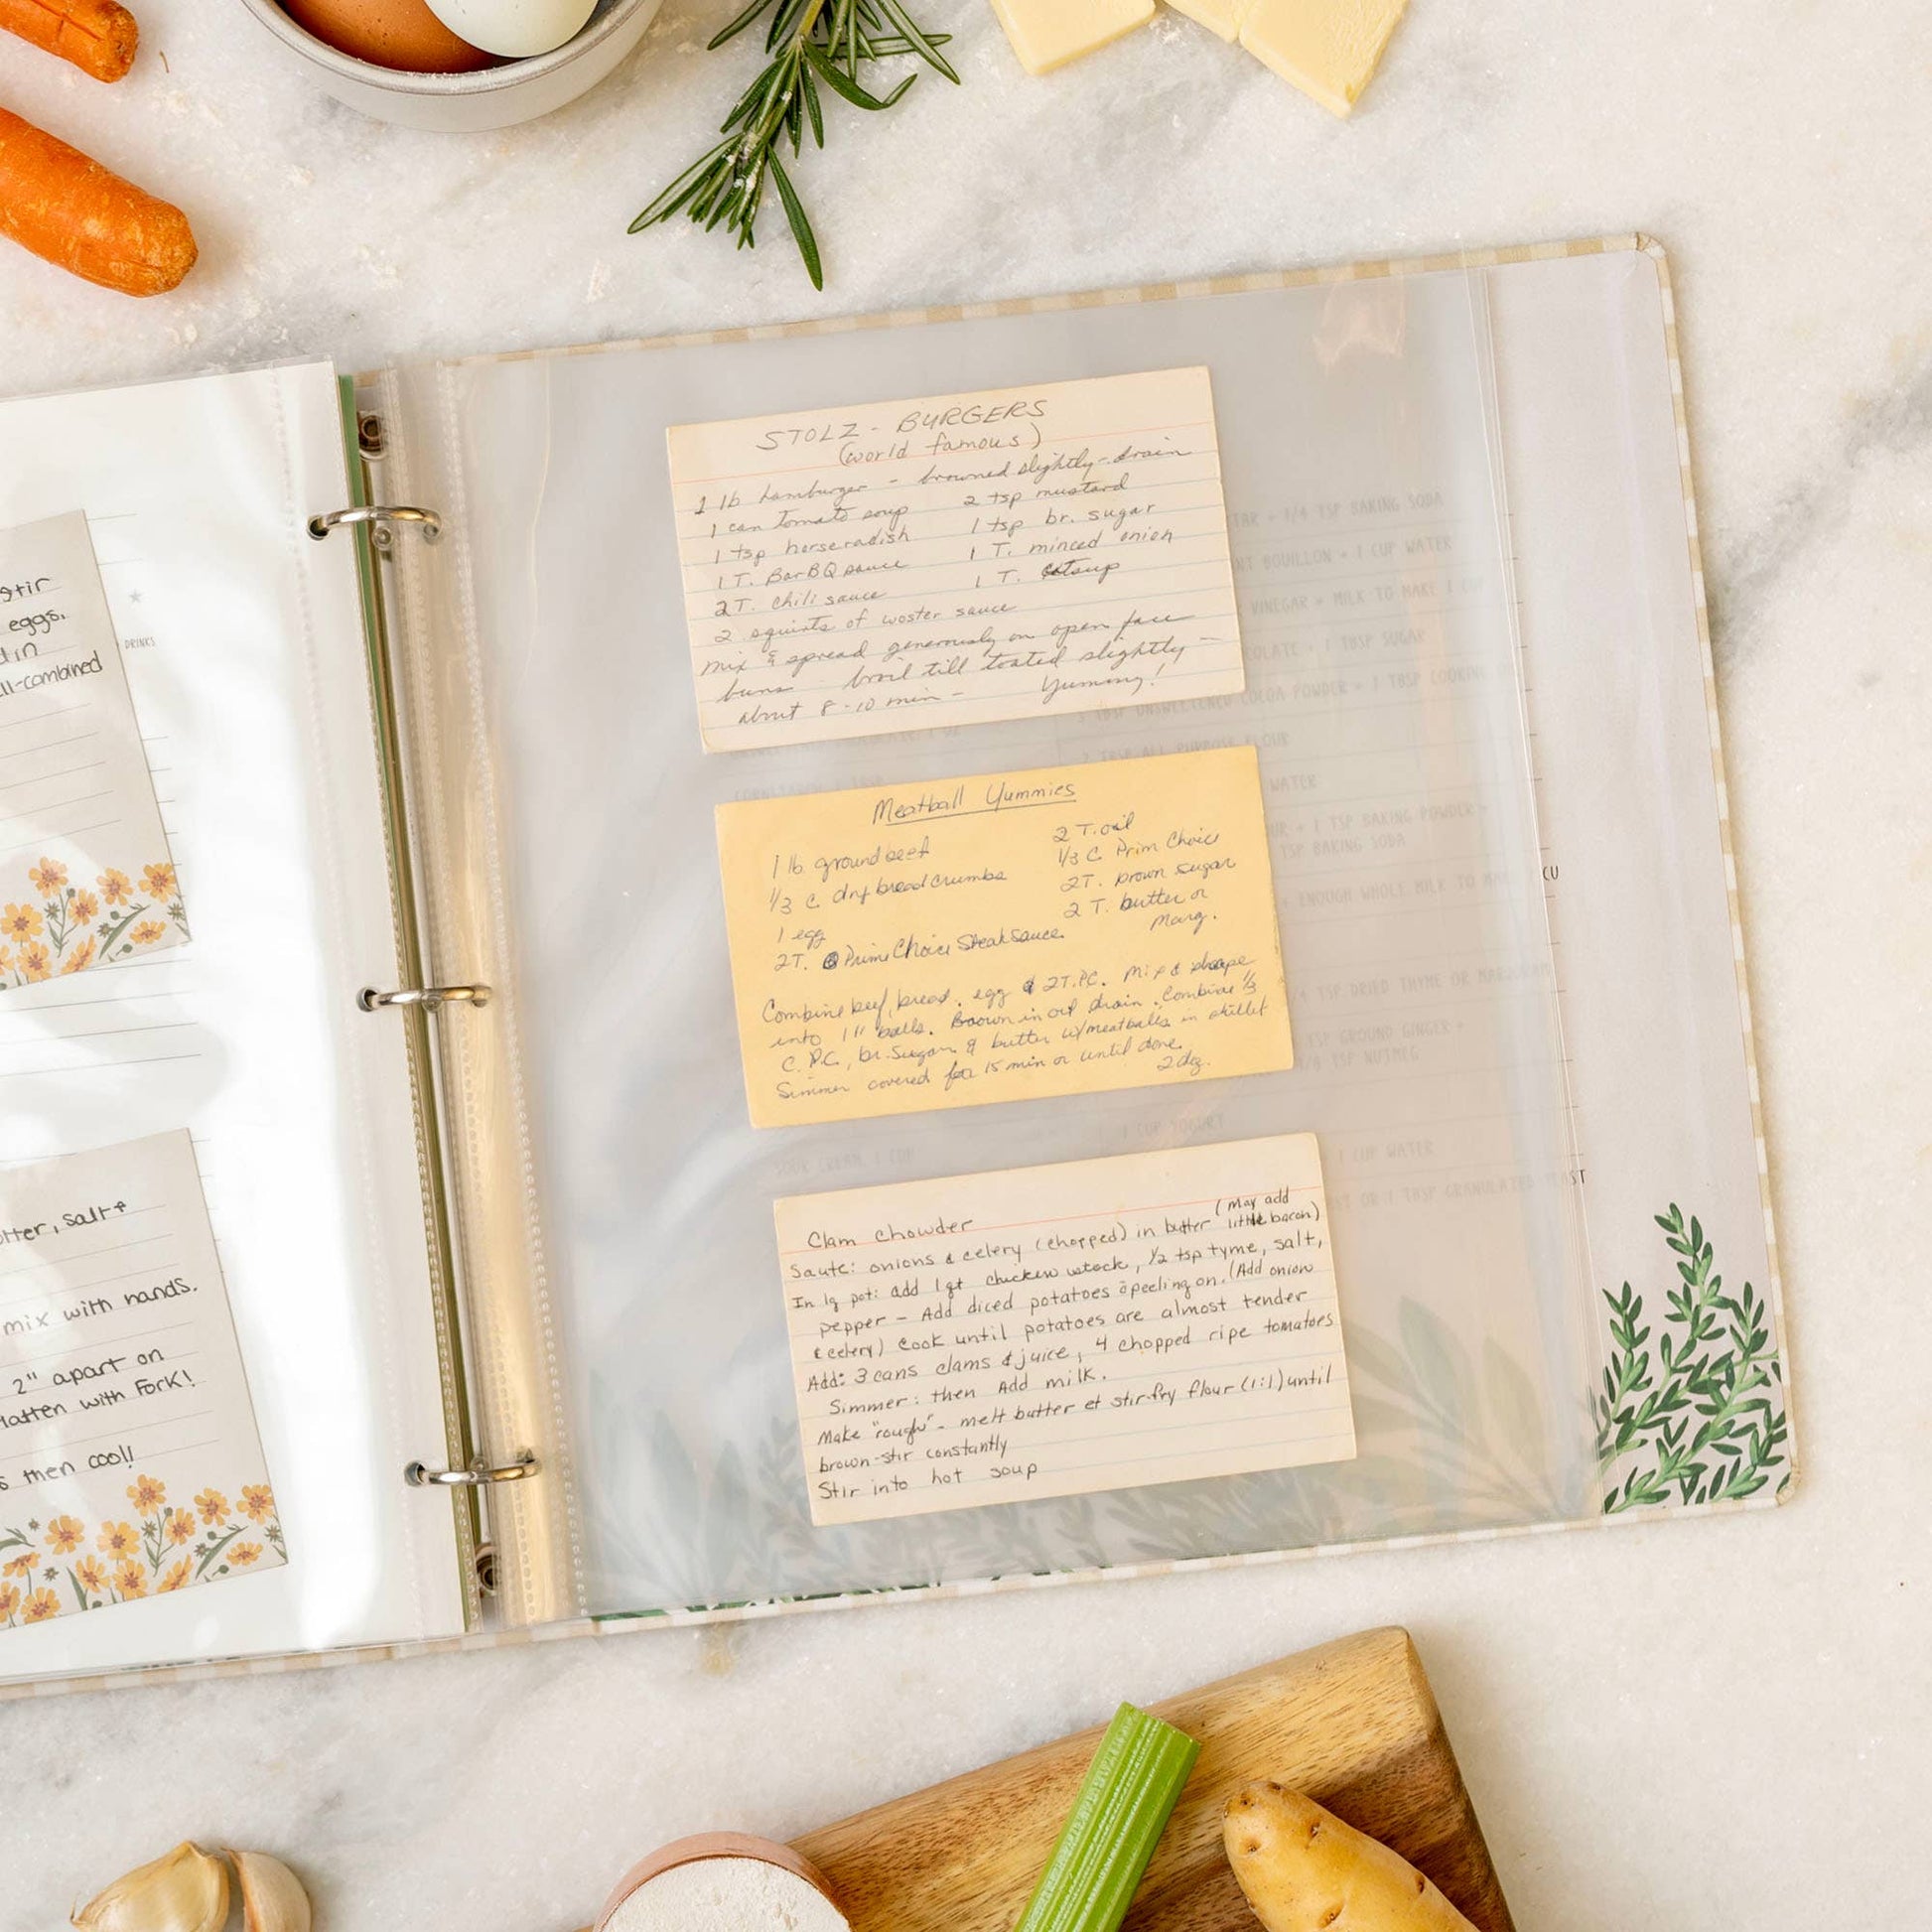 stir
eggs.
d in
ll-combined
DRINKS
tter, salt &
mix with hands.
2" apart on
latten with Fork!
s then cool!
STOLZ - BURGERS
(world famous)
1 lb hamburger - browned slightly - drain
1 can tomato soup 2 tsp mustard
1 tsp horseradish 1 tsp br. sugar
1 T. BarBQ sauce 1 T. minced onion
2 T. chili sauce 1 T. catsup
2 squirts of woster sauce
mix & spread generously on open face
buns broil till toasted slightly -
about 8-10 min - Yummy!
Meatball Yummies
1 lb ground beef 2 T. oil
1/3 C. dry bread crumbs 1/3 C Prim Choice
1 egg 2T. brown sugar
2T. Prime Choice Steak Sauce 2 T. butter or
Marg.
Combine beef, bread, egg & 2T.P.C. Mix & shape
into 1" balls. Brown in oil drain. Combine 1/3
C. P.C., br. Sugar & butter w/meatballs in skillet
Simmer covered for 15 min or until done.
2 doz.
Clam Chowder (may add
Saute: onions & celery (chopped) in butter little bacon)
In lg pot: add 1 qt chicken stock, 1/2 tsp tyme, salt,
pepper - Add diced potatoes c̄ peeling on. (Add onion
& celery) Cook until potatoes are almost tender
Add: 3 cans clams & juice, 4 chopped ripe tomatoes
Simmer: then Add milk.
Make "rough" - melt butter et stir-fry flour (1:1) until
brown-stir constantly
Stir into hot soup
TAR + 1/4 TSP BAKING SODA
NT BOUILLON + 1 CUP WATER
VINEGAR + MILK TO MAKE 1 CUP
COLATE + 1 TBSP SUGAR
3 TBSP UNSWEETENED COCOA POWDER + 1 TBSP COOKING
2 TBSP ALL PURPOSE FLOUR
WATER
UR + 1 TSP BAKING POWDER
TSP BAKING SODA
+ ENOUGH WHOLE MILK TO MAKE
CU
1/4 TSP DRIED THYME OR MARJORAM
TSP GROUND GINGER +
1/8 TSP NUTMEG
SOUR CREAM 1 CUP 1 CUP YOGURT
1 CUP WATER
OR 1 TBSP GRANULATED YEAST